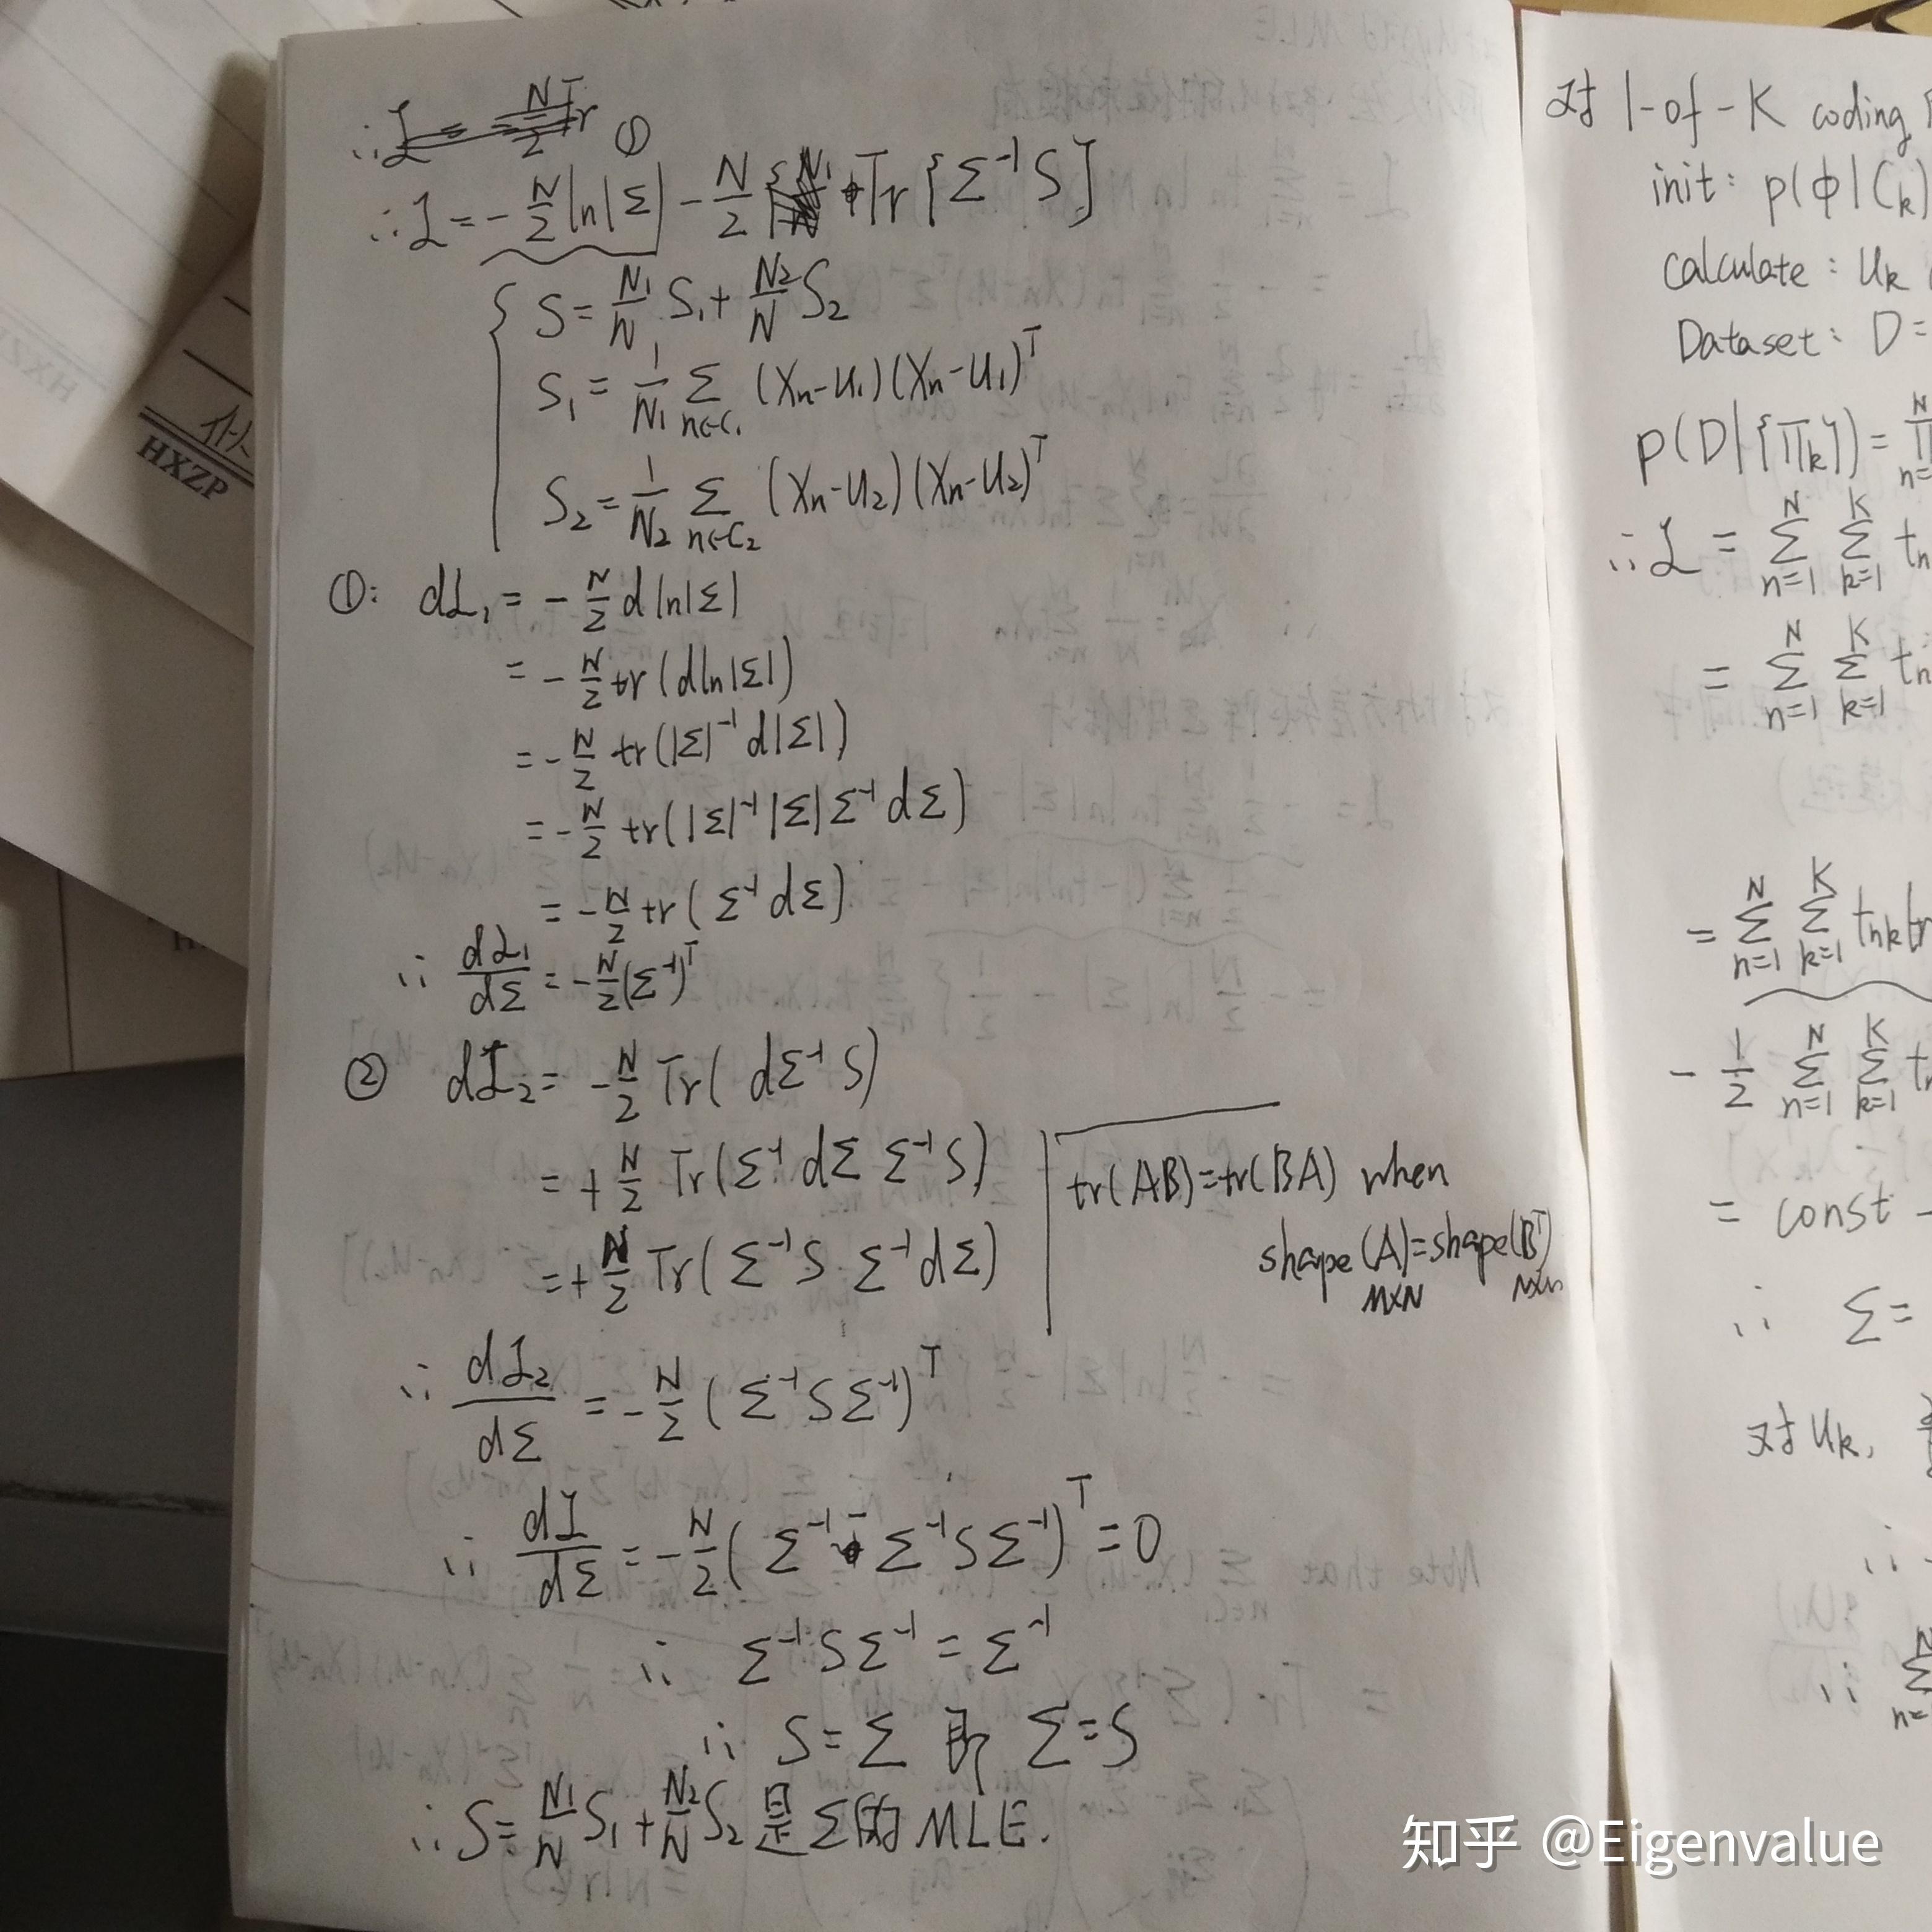 ∴ L = -N/2 Tr ①
∴ L = -N/2 ln|Σ| - N/2 Tr{Σ⁻¹S}
S = N₁/N S₁ + N₂/N S₂
S₁ = 1/N₁ Σ_{n∈C₁} (Xn-u₁)(Xn-u₁)ᵀ
S₂ = 1/N₂ Σ_{n∈C₂} (Xn-u₂)(Xn-u₂)ᵀ
①: dL₁ = -N/2 d ln|Σ|
= -N/2 tr(d ln|Σ|)
= -N/2 tr(|Σ|⁻¹ d|Σ|)
= -N/2 tr(|Σ|⁻¹|Σ|Σ⁻¹dΣ)
= -N/2 tr(Σ⁻¹dΣ)
∴ dL₁/dΣ = -N/2(Σ⁻¹)ᵀ
② dL₂ = -N/2 Tr(dΣ⁻¹ S)
= +N/2 Tr(Σ⁻¹ dΣ Σ⁻¹ S)
= +N/2 Tr(Σ⁻¹ S Σ⁻¹ dΣ)
tr(AB)=tr(BA) when
shape(A)=shape(Bᵀ)
M×N
∴ dL₂/dΣ = -N/2 (Σ⁻¹SΣ⁻¹)ᵀ
∴ dL/dΣ = -N/2 (Σ⁻¹ - Σ⁻¹SΣ⁻¹)ᵀ = 0
∴ Σ⁻¹SΣ⁻¹ = Σ⁻¹
∴ S=Σ 即 Σ=S
∴ S = N₁/N S₁ + N₂/N S₂ 是Σ的MLE.
对 1-of-K coding
init: p(ϕ|Ck)
calculate: uk
Dataset: D=
p(D|{πk}) = Π^N_{n=
∴ L = Σ^N_{n=1} Σ^K_{k=1} tn
= Σ^N_{n=1} Σ^K_{k=1} tn
= Σ^N_{n=1} Σ^K_{k=1} tnk
- 1/2 Σ^N_{n=1} Σ^K_{k=1} tn
= const -
∴ Σ=
对 uk,
∴
∴ Σ^N_{n=
HXZP
知乎 @Eigenvalue